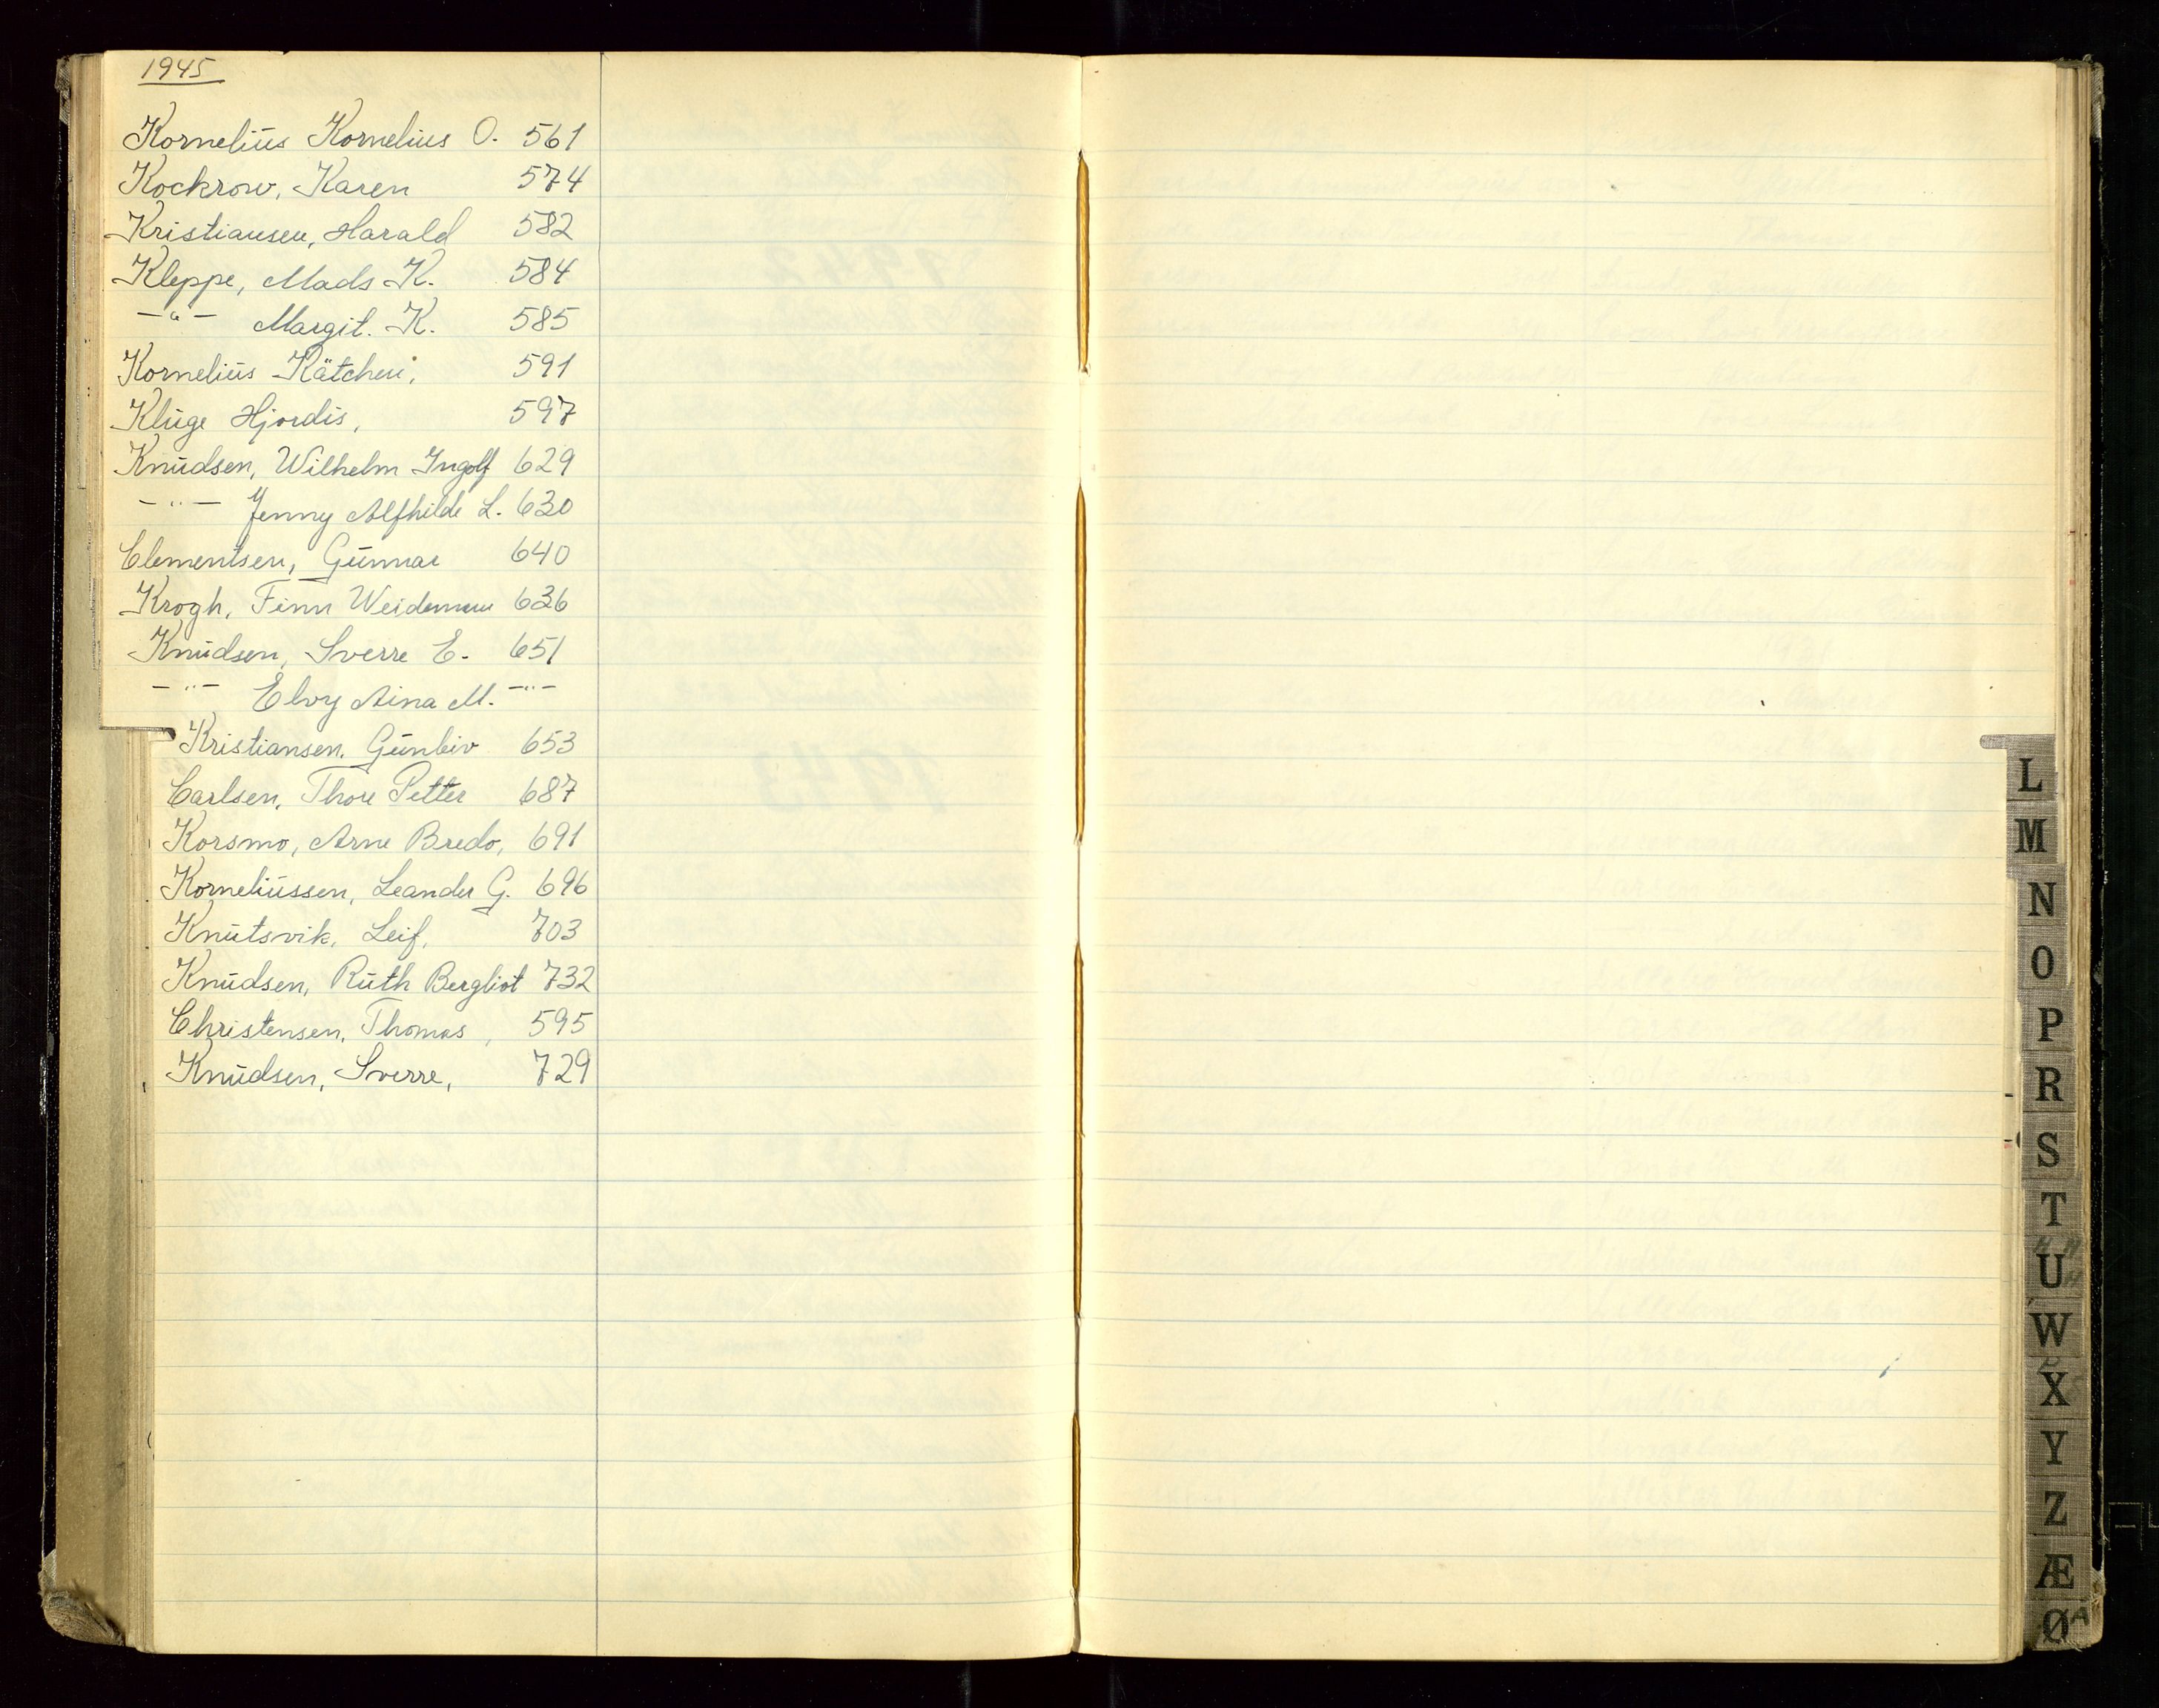 1945
Kornelius Kornelius O. 561
Kockrow, Karen 574
Kristiansen, Harald 582
Kleppe, Mads K. 584
-"- Margit. K. 585
Kornelius Kätchen, 591
Kluge Hjordis, 597
Knudsen, Wilhelm Ingolf 629
-"- Jenny Alfhilde L. 630
Clementsen, Gunnar 640
Krogh, Finn Weidemann 636
Knudsen, Sverre E. 651
-"- Elvy Aina M. -"-
Kristiansen, Gunleiv 653
Carlsen, Thore Petter 687
Korsmo, Arne Bredo, 691
Korneliussen, Leander G. 696
Knutsvik, Leif, 703
Knudsen, Ruth Bergliot 732
Christensen, Thomas, 595
Knudsen, Sverre, 729
L
M
N
O
P
R
S
T
U
W
X
Y
Z
Æ
Ø